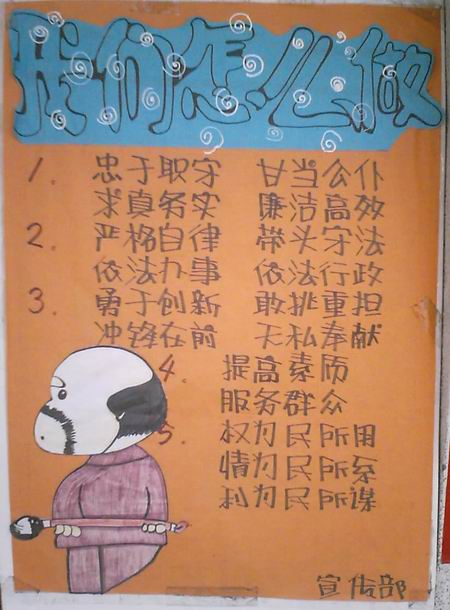 我们怎么做
1. 忠于职守 甘当公仆
求真务实 廉洁高效
2. 严格自律 带头守法
依法办事 依法行政
3. 勇于创新 敢挑重担
冲锋在前 无私奉献
4. 提高素质
服务群众
5. 权为民所用
情为民所系
利为民所谋
宣传部